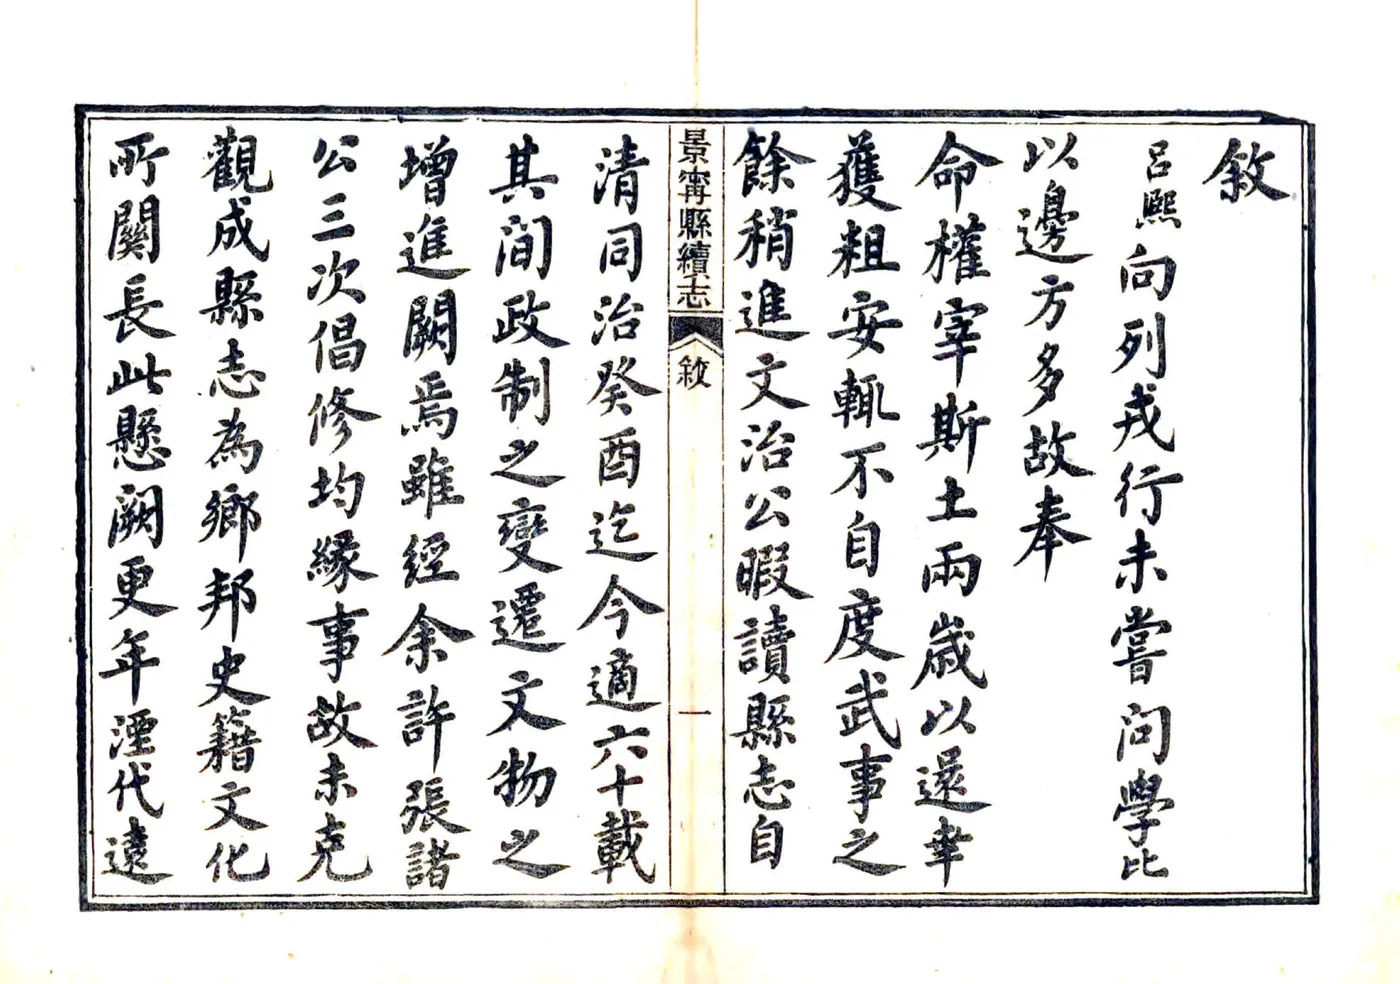 敘
呂熙向列戎行未嘗問學比
以邊方多故奉
命權宰斯土兩歲以還幸
獲粗安輒不自度武事之
餘稍進文治公暇讀縣志自
景甯縣續志
敘
一
清同治癸酉迄今適六十載
其間政制之變遷文物之
增進闕焉雖經余許張諸
公三次倡修均緣事故未克
觀成縣志為鄉邦史籍文化
所關長此懸闕更年湮代遠